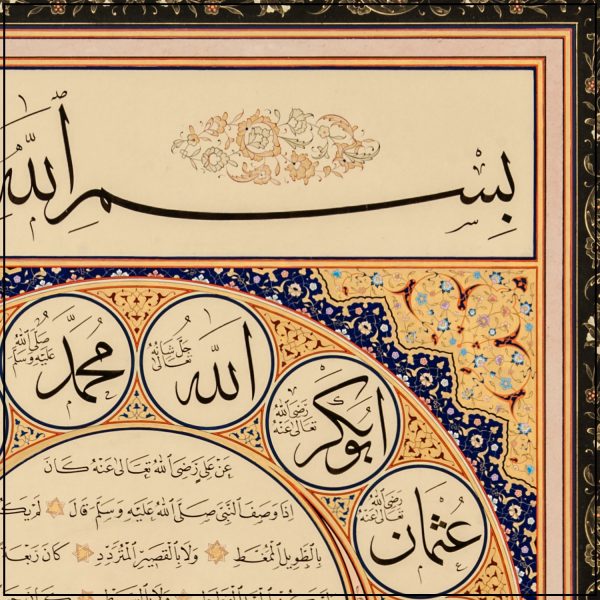 بِسْمِ اللّٰه
اللّٰه
جَلَّ شَانُهُ تَعَالٰى
مُحَمَّد
صَلَّى اللّٰهُ عَلَيْهِ وَسَلَّمَ
اَبُو بَكْر
رَضِىَ اللّٰهُ تَعَالٰى عَنْهُ
عُثْمَان
رَضِىَ اللّٰهُ تَعَالٰى عَنْهُ
عَنْ عَلِيٍّ رَضِىَ اللّٰهُ تَعَالٰى عَنْهُ كَانَ
اِذَا وَصَفَ النَّبِىَّ صَلَّى اللّٰهُ عَلَيْهِ وَسَلَّمَ قَالَ لَمْ يَكُ
بِالطَّوِيلِ الْمُمَّغِطِ وَلَا بِالْقَصِيرِ الْمُتَرَدِّدِ كَانَ رَبْعَةً